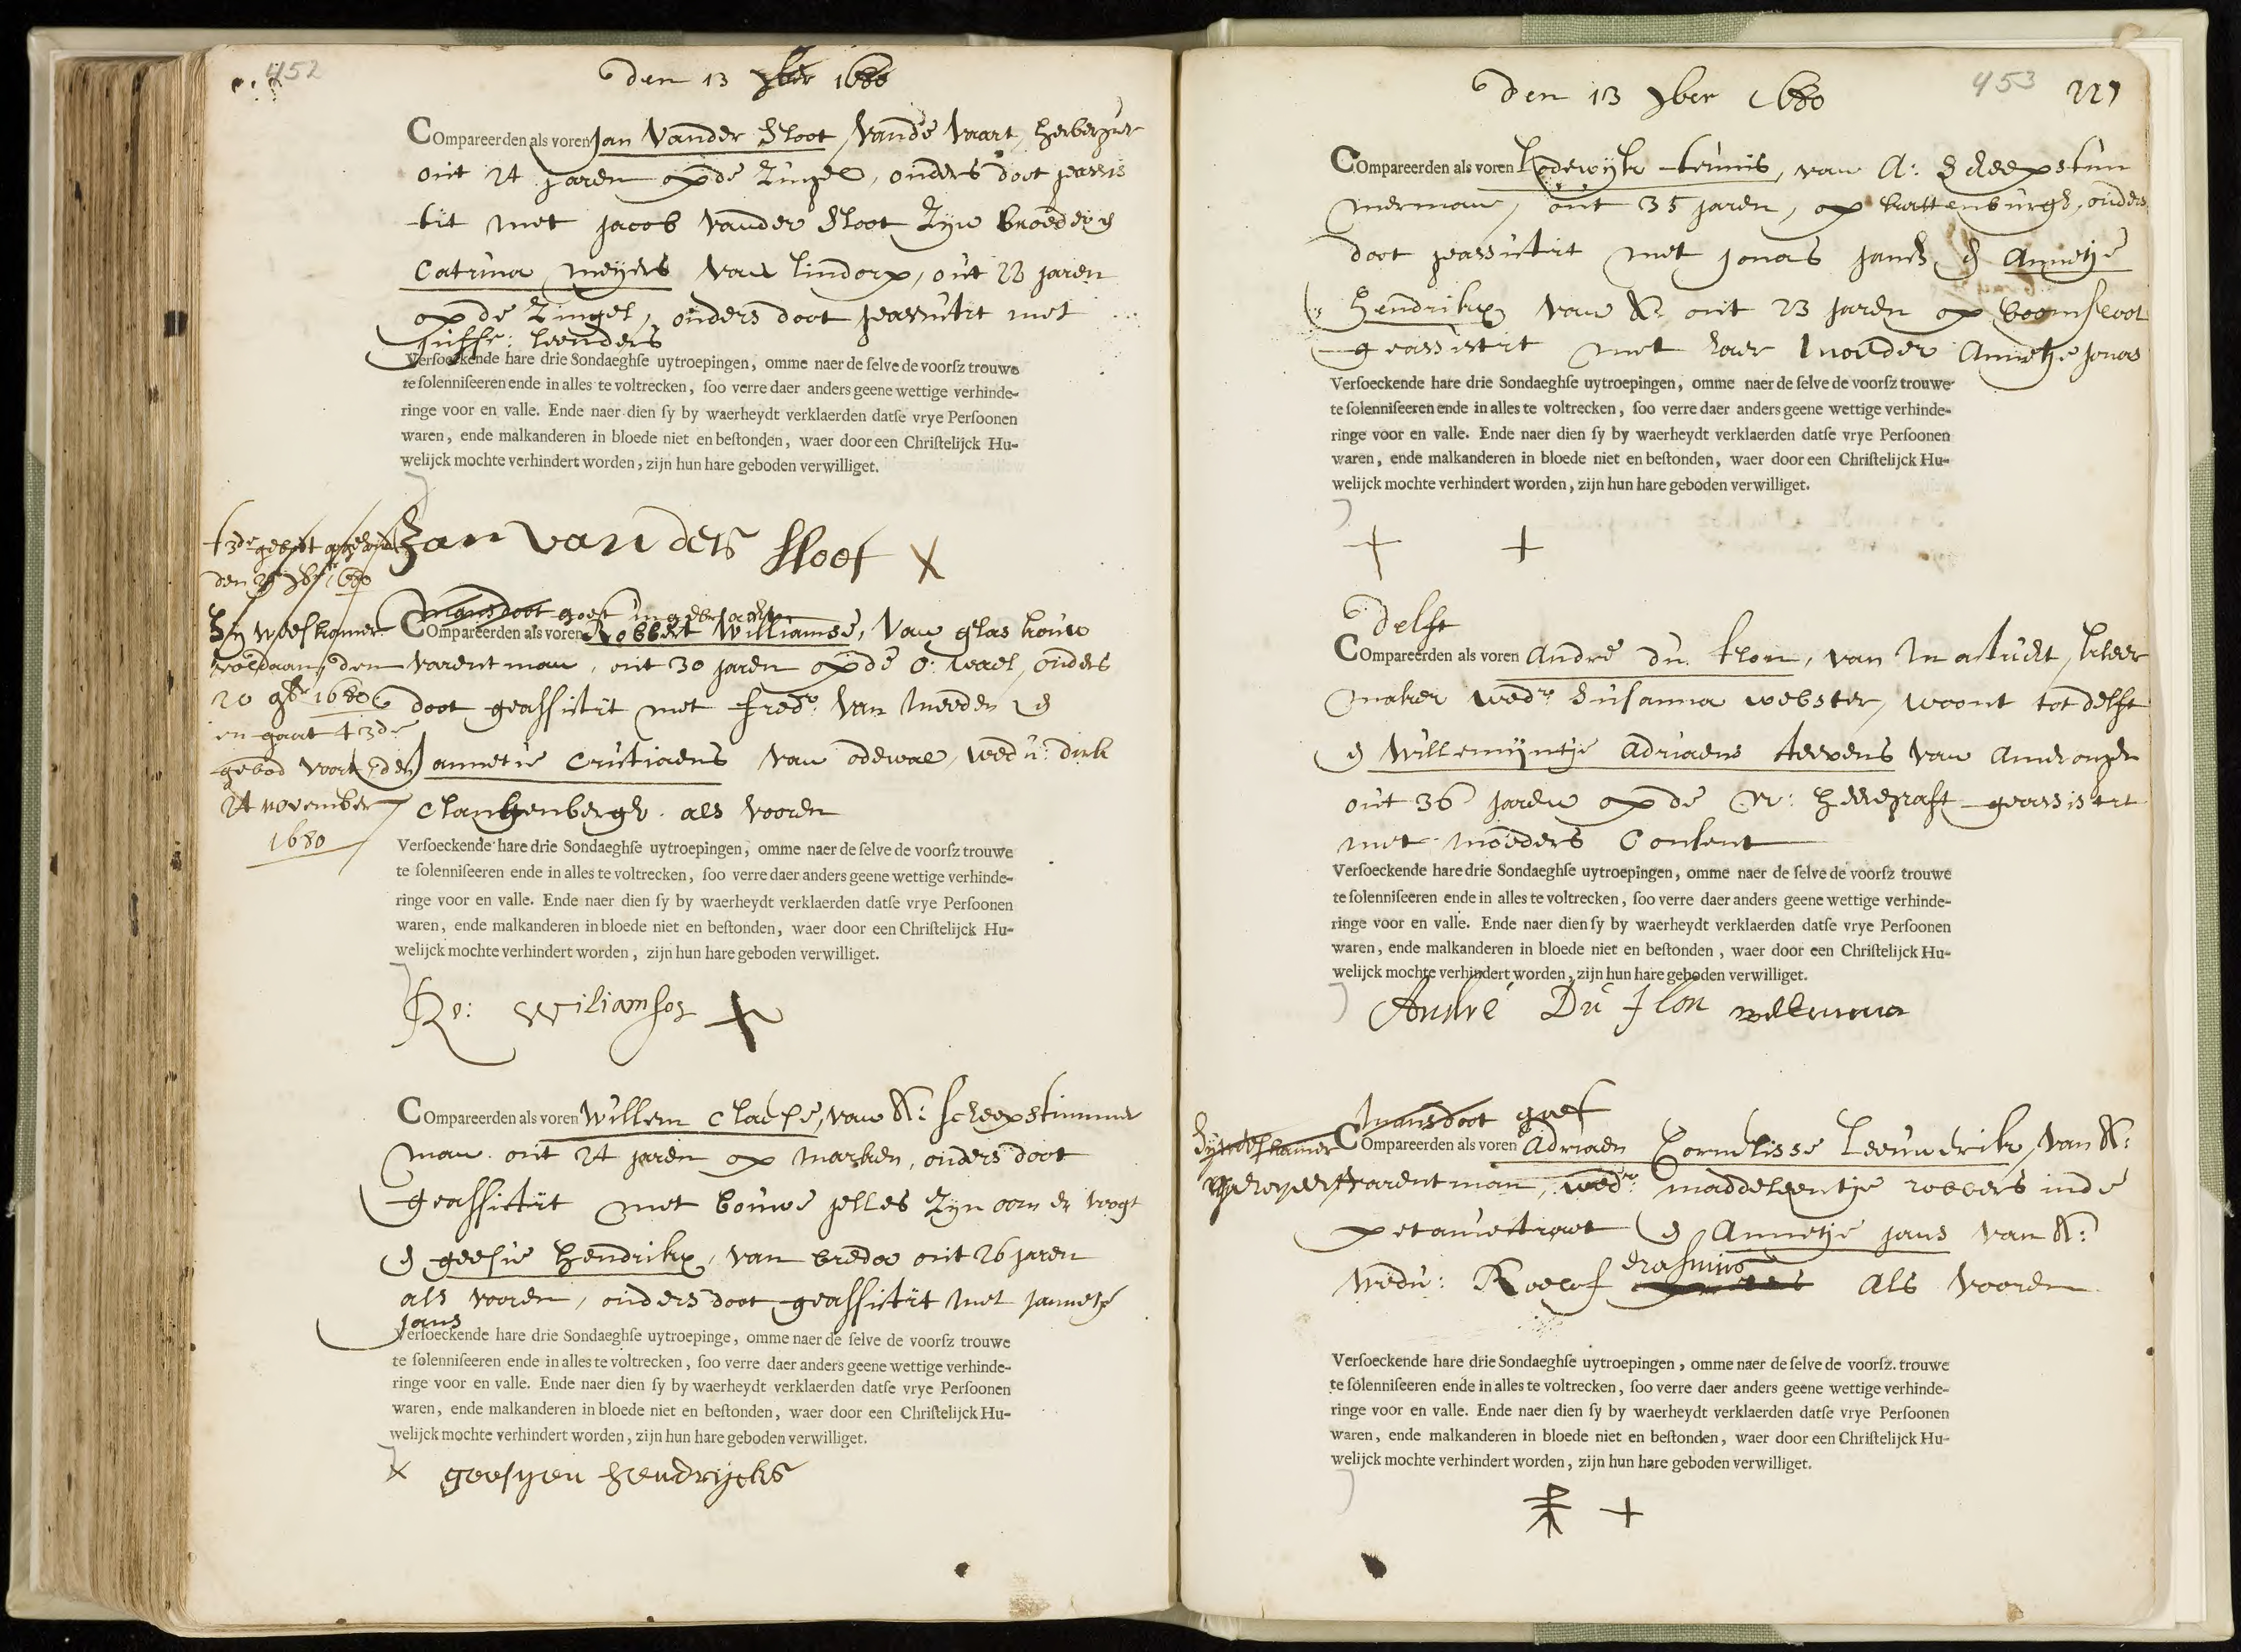 452
den 13 7ber 1680
COmpareerden als voren Jan Vander Sloot, vande Vaart, herbergier
out 24 jaren op de Zingel, ouders doot geassis
tit met jacob vander Sloot Zijn broeder &
Catrina meijers van lindorp, out 23 jaren
op de Zingel, ouders doot geassistrt met
juffr: leenders
Verſoeckende hare drie Sondaeghſe uytroepingen, omme naer de ſelve de voorſz trouwe
te ſolenniſeeren ende in alles te voltrecken, ſoo verre daer anders geene wettige verhinde-
ringe voor en valle. Ende naer dien ſy by waerheydt verklaerden datſe vrye Perſoonen
waren, ende malkanderen in bloede niet en beſtonden, waer door een Chriſtelijck Hu-
welijck mochte verhindert worden, zijn hun hare geboden verwilliget.
Jan van der Sloot X
t 3de gebot
den 7br 1680
Sy weeskamer
voldaan, den
20 9br 1680
en gaat t 3de
gebod voort den
24 november
1680
mans doot goet ingebracht
COmpareerden als voren Robbert Williamse, van glas kouw
varentman, out 30 jaren op de O: wael, ouders
doot geassistrt met fredr: van &
annetie Cristiaens van odewae, wedu: dirk
Clankenbergh. als vooren
Verſoeckende hare drie Sondaeghſe uytroepingen, omme naer de ſelve de voorſz trouwe
te ſolenniſeeren ende in alles te voltrecken, ſoo verre daer anders geene wettige verhinde-
ringe voor en valle. Ende naer dien ſy by waerheydt verklaerden datſe vrye Perſoonen
waren, ende malkanderen in bloede niet en beſtonden, waer door een Chriſtelijck Hu-
welijck mochte verhindert worden, zijn hun hare geboden verwilliget.
Ro: Wiliamson X
COmpareerden als voren Willem Claesse, van A: scheepstimmer
man. out 24 jaren op marken, ouders doot
geassistrt met bouwe jelles Zijn oom en voogt
& geesie hendrikx, van breda out 26 jaren
als vooren, ouders doot geassistrt met jannetje
jans
Verſoeckende hare drie Sondaeghſe uytroepinge, omme naer de ſelve de voorſz trouwe
te ſolenniſeeren ende in alles te voltrecken, ſoo verre daer anders geene wettige verhinde-
ringe voor en valle. Ende naer dien ſy by waerheydt verklaerden datſe vrye Perſoonen
waren, ende malkanderen in bloede niet en beſtonden, waer door een Chriſtelijck Hu-
welijck mochte verhindert worden, zijn hun hare geboden verwilliget.
X geesyen hendrijcks
den 13 7ber 1680
453
227
COmpareerden als voren Lodewijk teunis, van A: Scheepstim
merman, out 35 jaren, op kattenburgh, ouders
doot geassistrt met jonas jansz & Annetje
hendrikx van A: out 23 jaren op boomsloot
geassistrt met haer moeder Annetje jonas
Verſoeckende hare drie Sondaeghſe uytroepingen, omme naer de ſelve de voorſz trouwe
te ſolenniſeeren ende in alles te voltrecken, ſoo verre daer anders geene wettige verhinde-
ringe voor en valle. Ende naer dien ſy by waerheydt verklaerden datſe vrye Perſoonen
waren, ende malkanderen in bloede niet en beſtonden, waer door een Chriſtelijck Hu-
welijck mochte verhindert worden, zijn hun hare geboden verwilliget.
+ +
Delft
COmpareerden als voren Andre du flon, van Mastricht, kleer
maker wedr Susanna webster, woont tot delft
& Willemijntje adriaens Steevens van Amerongen
out 36 jaren op de Kr: heeregraft geassistrt
met moeders Consent
Verſoeckende hare drie Sondaeghſe uytroepingen, omme naer de ſelve de voorſz trouwe
te ſolenniſeeren ende in alles te voltrecken, ſoo verre daer anders geene wettige verhinde-
ringe voor en valle. Ende naer dien ſy by waerheydt verklaerden datſe vrye Perſoonen
waren, ende malkanderen in bloede niet en beſtonden, waer door een Chriſtelijck Hu-
welijck mochte verhindert worden, zijn hun hare geboden verwilliget.
André Du flon willemina
mans doot goet
Sy weeskamer
COmpareerden als voren Adriaen Cornelisse Leeuwerik, van A:
varentman, wedr: maddeleentje robbers inde
petamestraet & Annetje jans van A:
wedu: Roelof erasmus als vooren
Verſoeckende hare drie Sondaeghſe uytroepingen, omme naer de ſelve de voorſz. trouwe
te ſolenniſeeren ende in alles te voltrecken, ſoo verre daer anders geene wettige verhinde-
ringe voor en valle. Ende naer dien ſy by waerheydt verklaerden datſe vrye Perſoonen
waren, ende malkanderen in bloede niet en beſtonden, waer door een Chriſtelijck Hu-
welijck mochte verhindert worden, zijn hun hare geboden verwilliget.
+